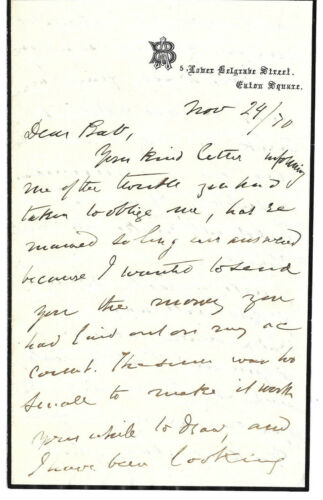 5. Lower Belgrave Street.
Eaton Square.
Nov 24/70
Dear Bab,
Your kind letter informing
me of the trouble you had
taken to oblige me, has re
mained so long unanswered
because I wanted to send
you the money you
had laid out on my ac
count. The sum was too
small to make it worth
your while to draw, and
I have been looking